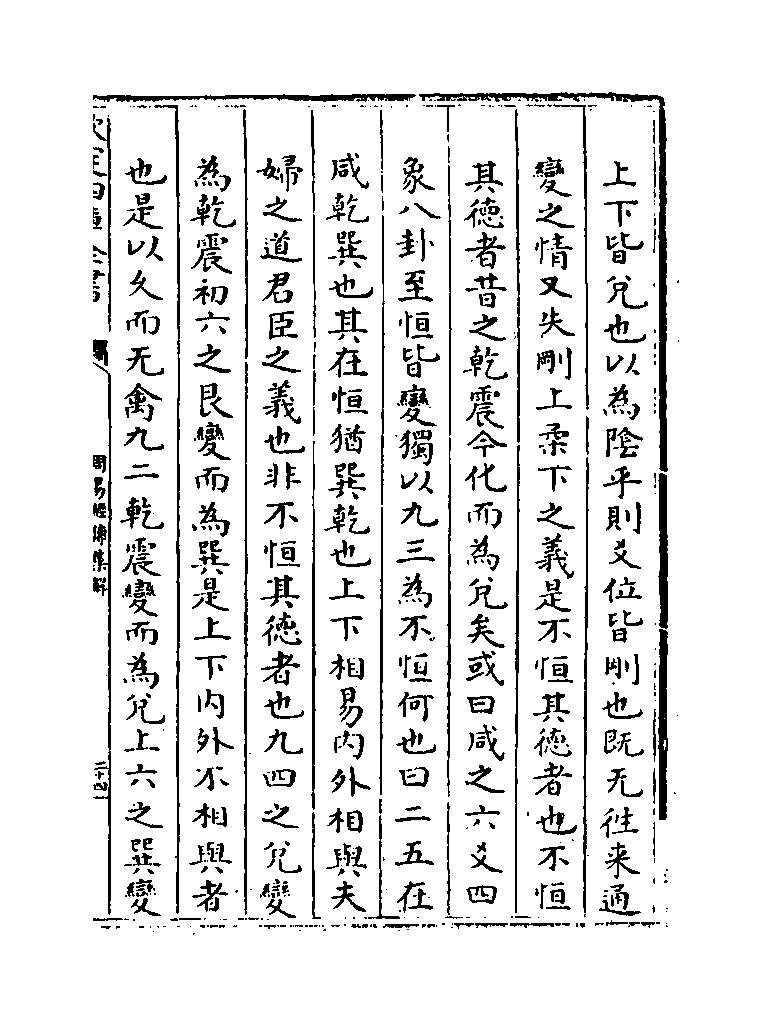 上下皆兌也以為陰乎則爻位皆剛也既无徃来通
變之情又失剛上柔下之義是不恒其徳者也不恒
其徳者昔之乾震今化而為兌矣或曰咸之六爻四
象八卦至恒皆變獨以九三為不恒何也曰二五在
咸乾巽也其在恒猶巽乾也上下相易内外相與夫
婦之道君臣之義也非不恒其徳者也九四之兌變
為乾震初六之艮變而為巽是上下内外不相與者
也是以久而无禽九二乾震變而為兌上六之巽變
欽定四庫全書
周易經傳集解
二十四